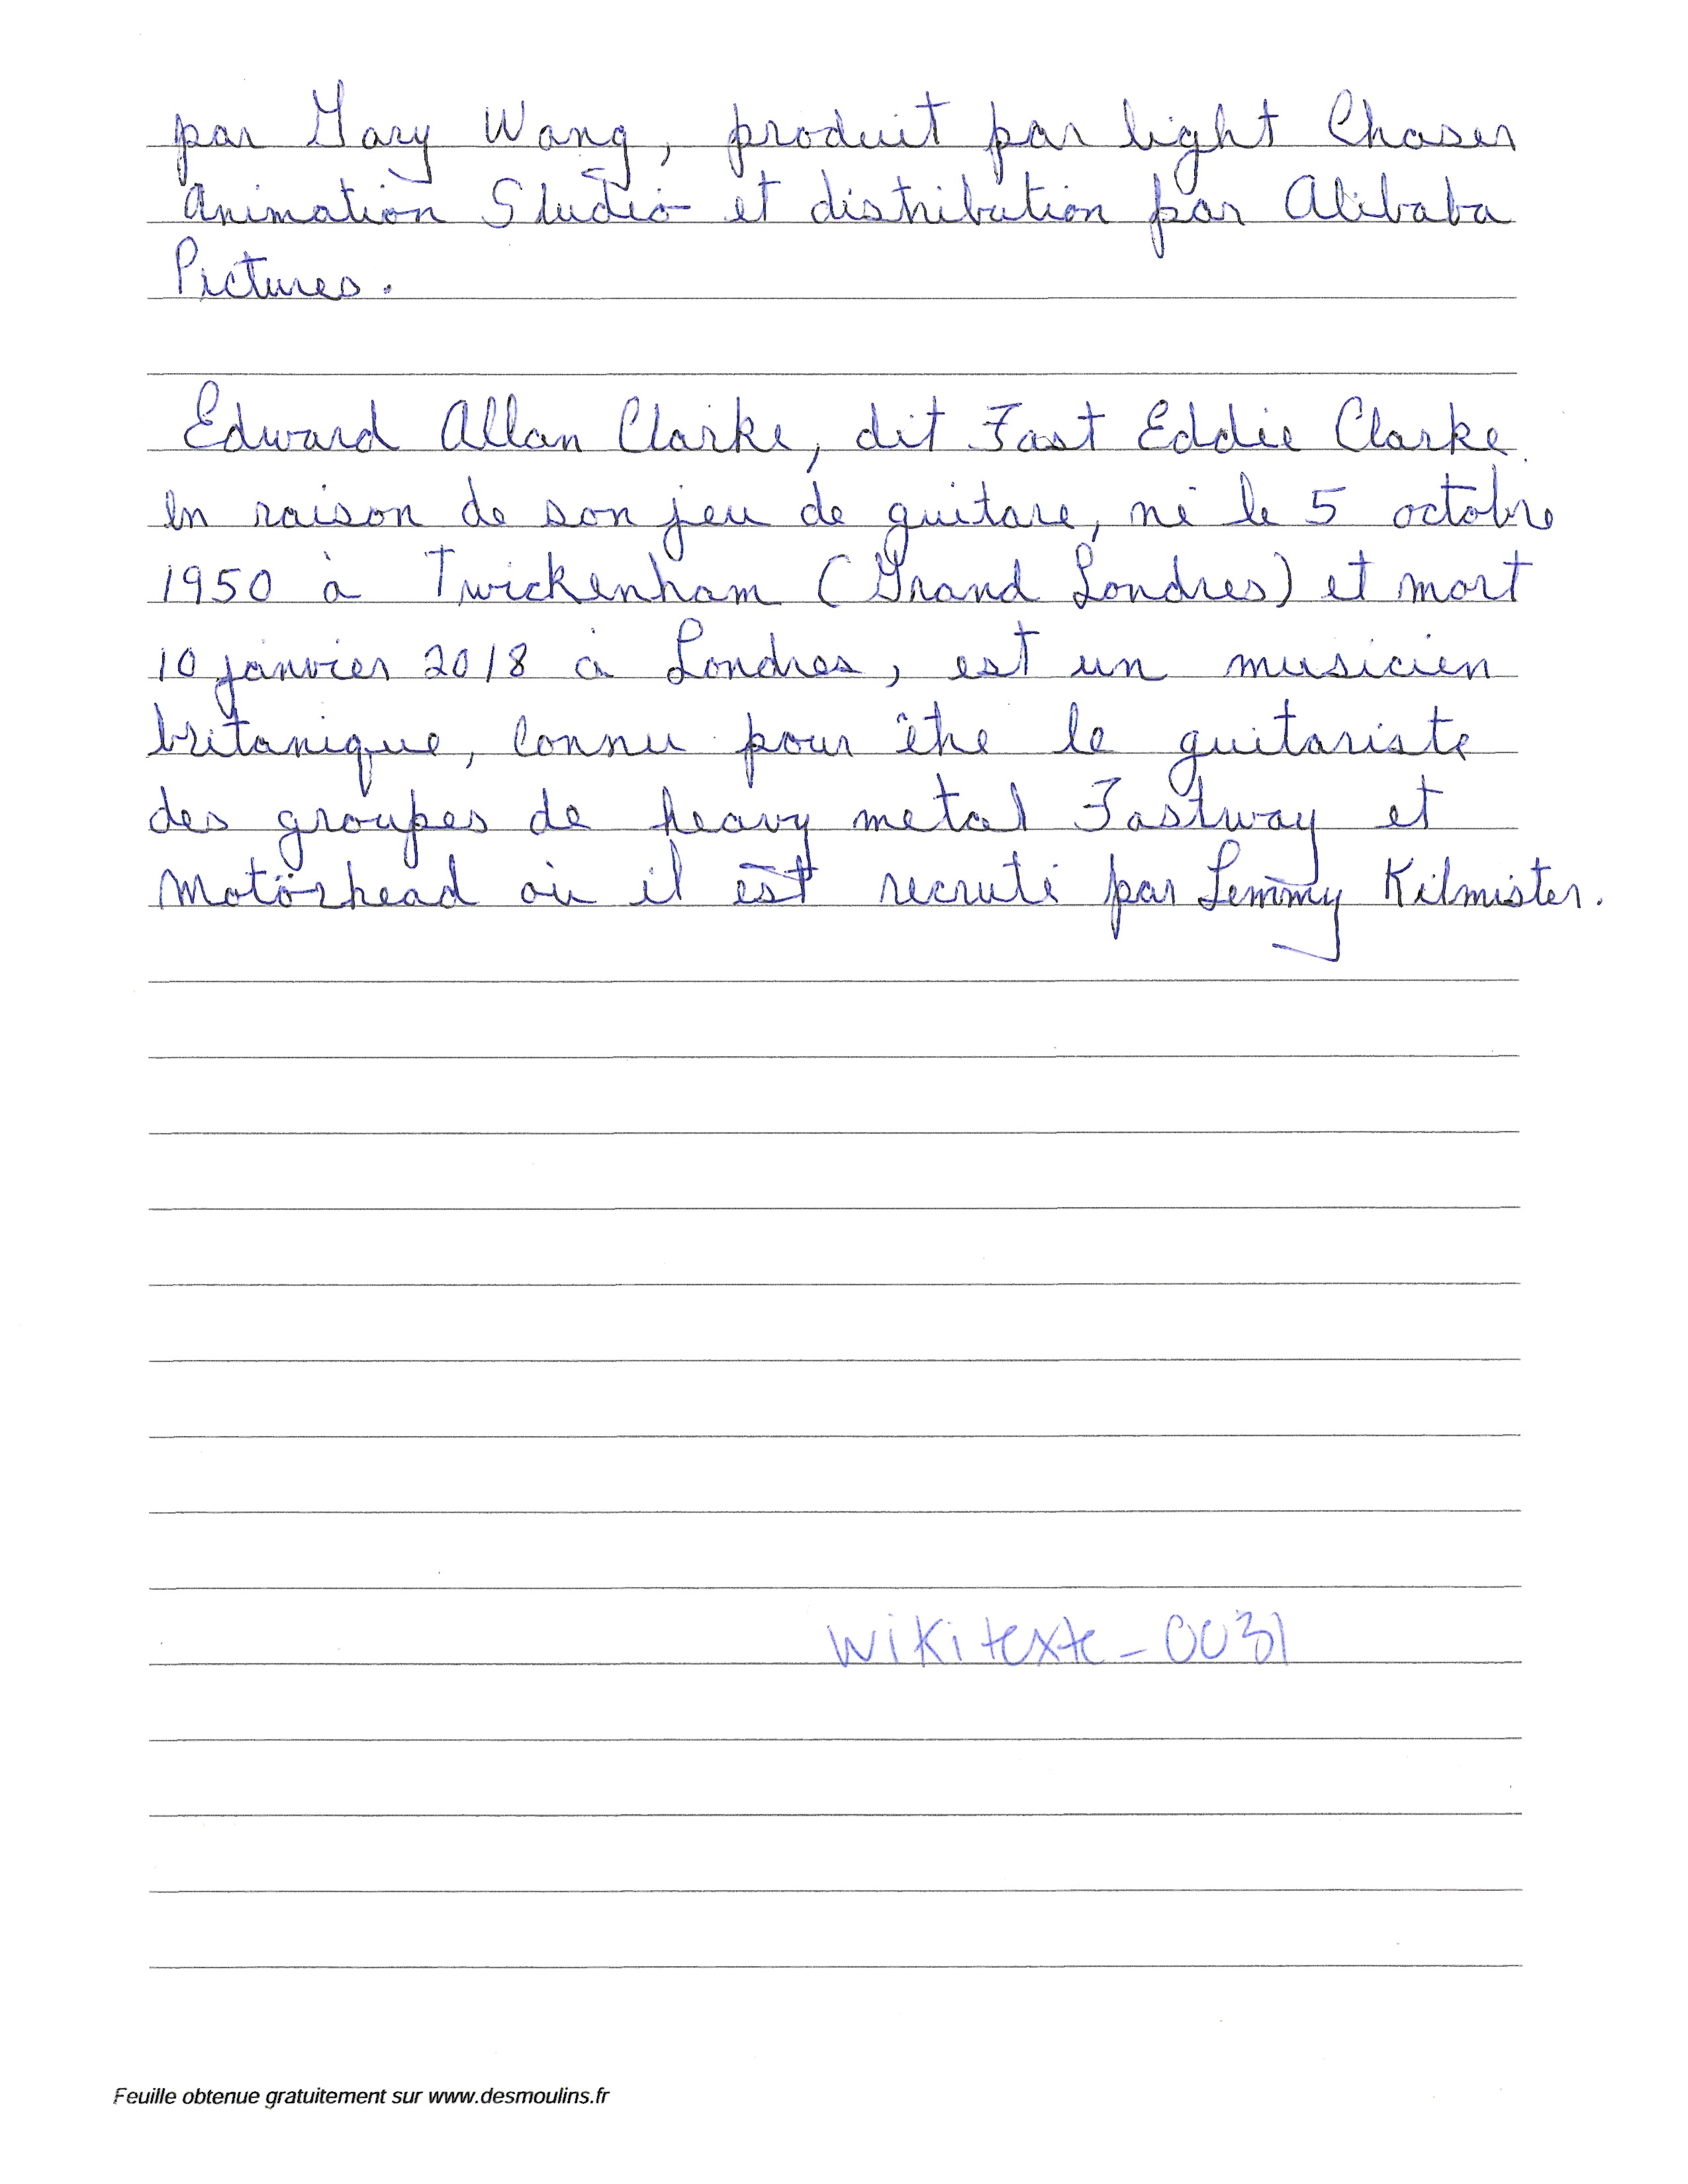 par Gary Wang, produit par light Chaser
Animation Studio et distribution par Alibaba
Pictures.
Edward Allan Clarke, dit Fast Eddie Clarke
en raison de son jeu de guitare, né le 5 octobre
1950 à Twickenham (Grand Londres) et mort
10 janvier 2018 à Londres, est un musicien
britanique, connu pour être le guitariste
des groupes de heavy metal Fastway et
Motörhead où il est recruté par Lemmy Kilmister.
wikitexte_0031
Feuille obtenue gratuitement sur www.desmoulins.fr